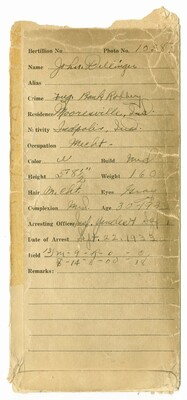 Bertillon No. Photo No. 10587
Name John Dillinger
Alias
Crime Fug. Bank Robbery
Residence Mooresville, Ind
Nativity Indpolis, Ind.
Occupation Mecht.
Color W Build Med
Height 5' 8½" Weight 160
Hair M. Cht. Eyes Gray
Complexion Med. Age 30
Arresting Officer
Date of Arrest Sept. 22, 1933
Held
Remarks: